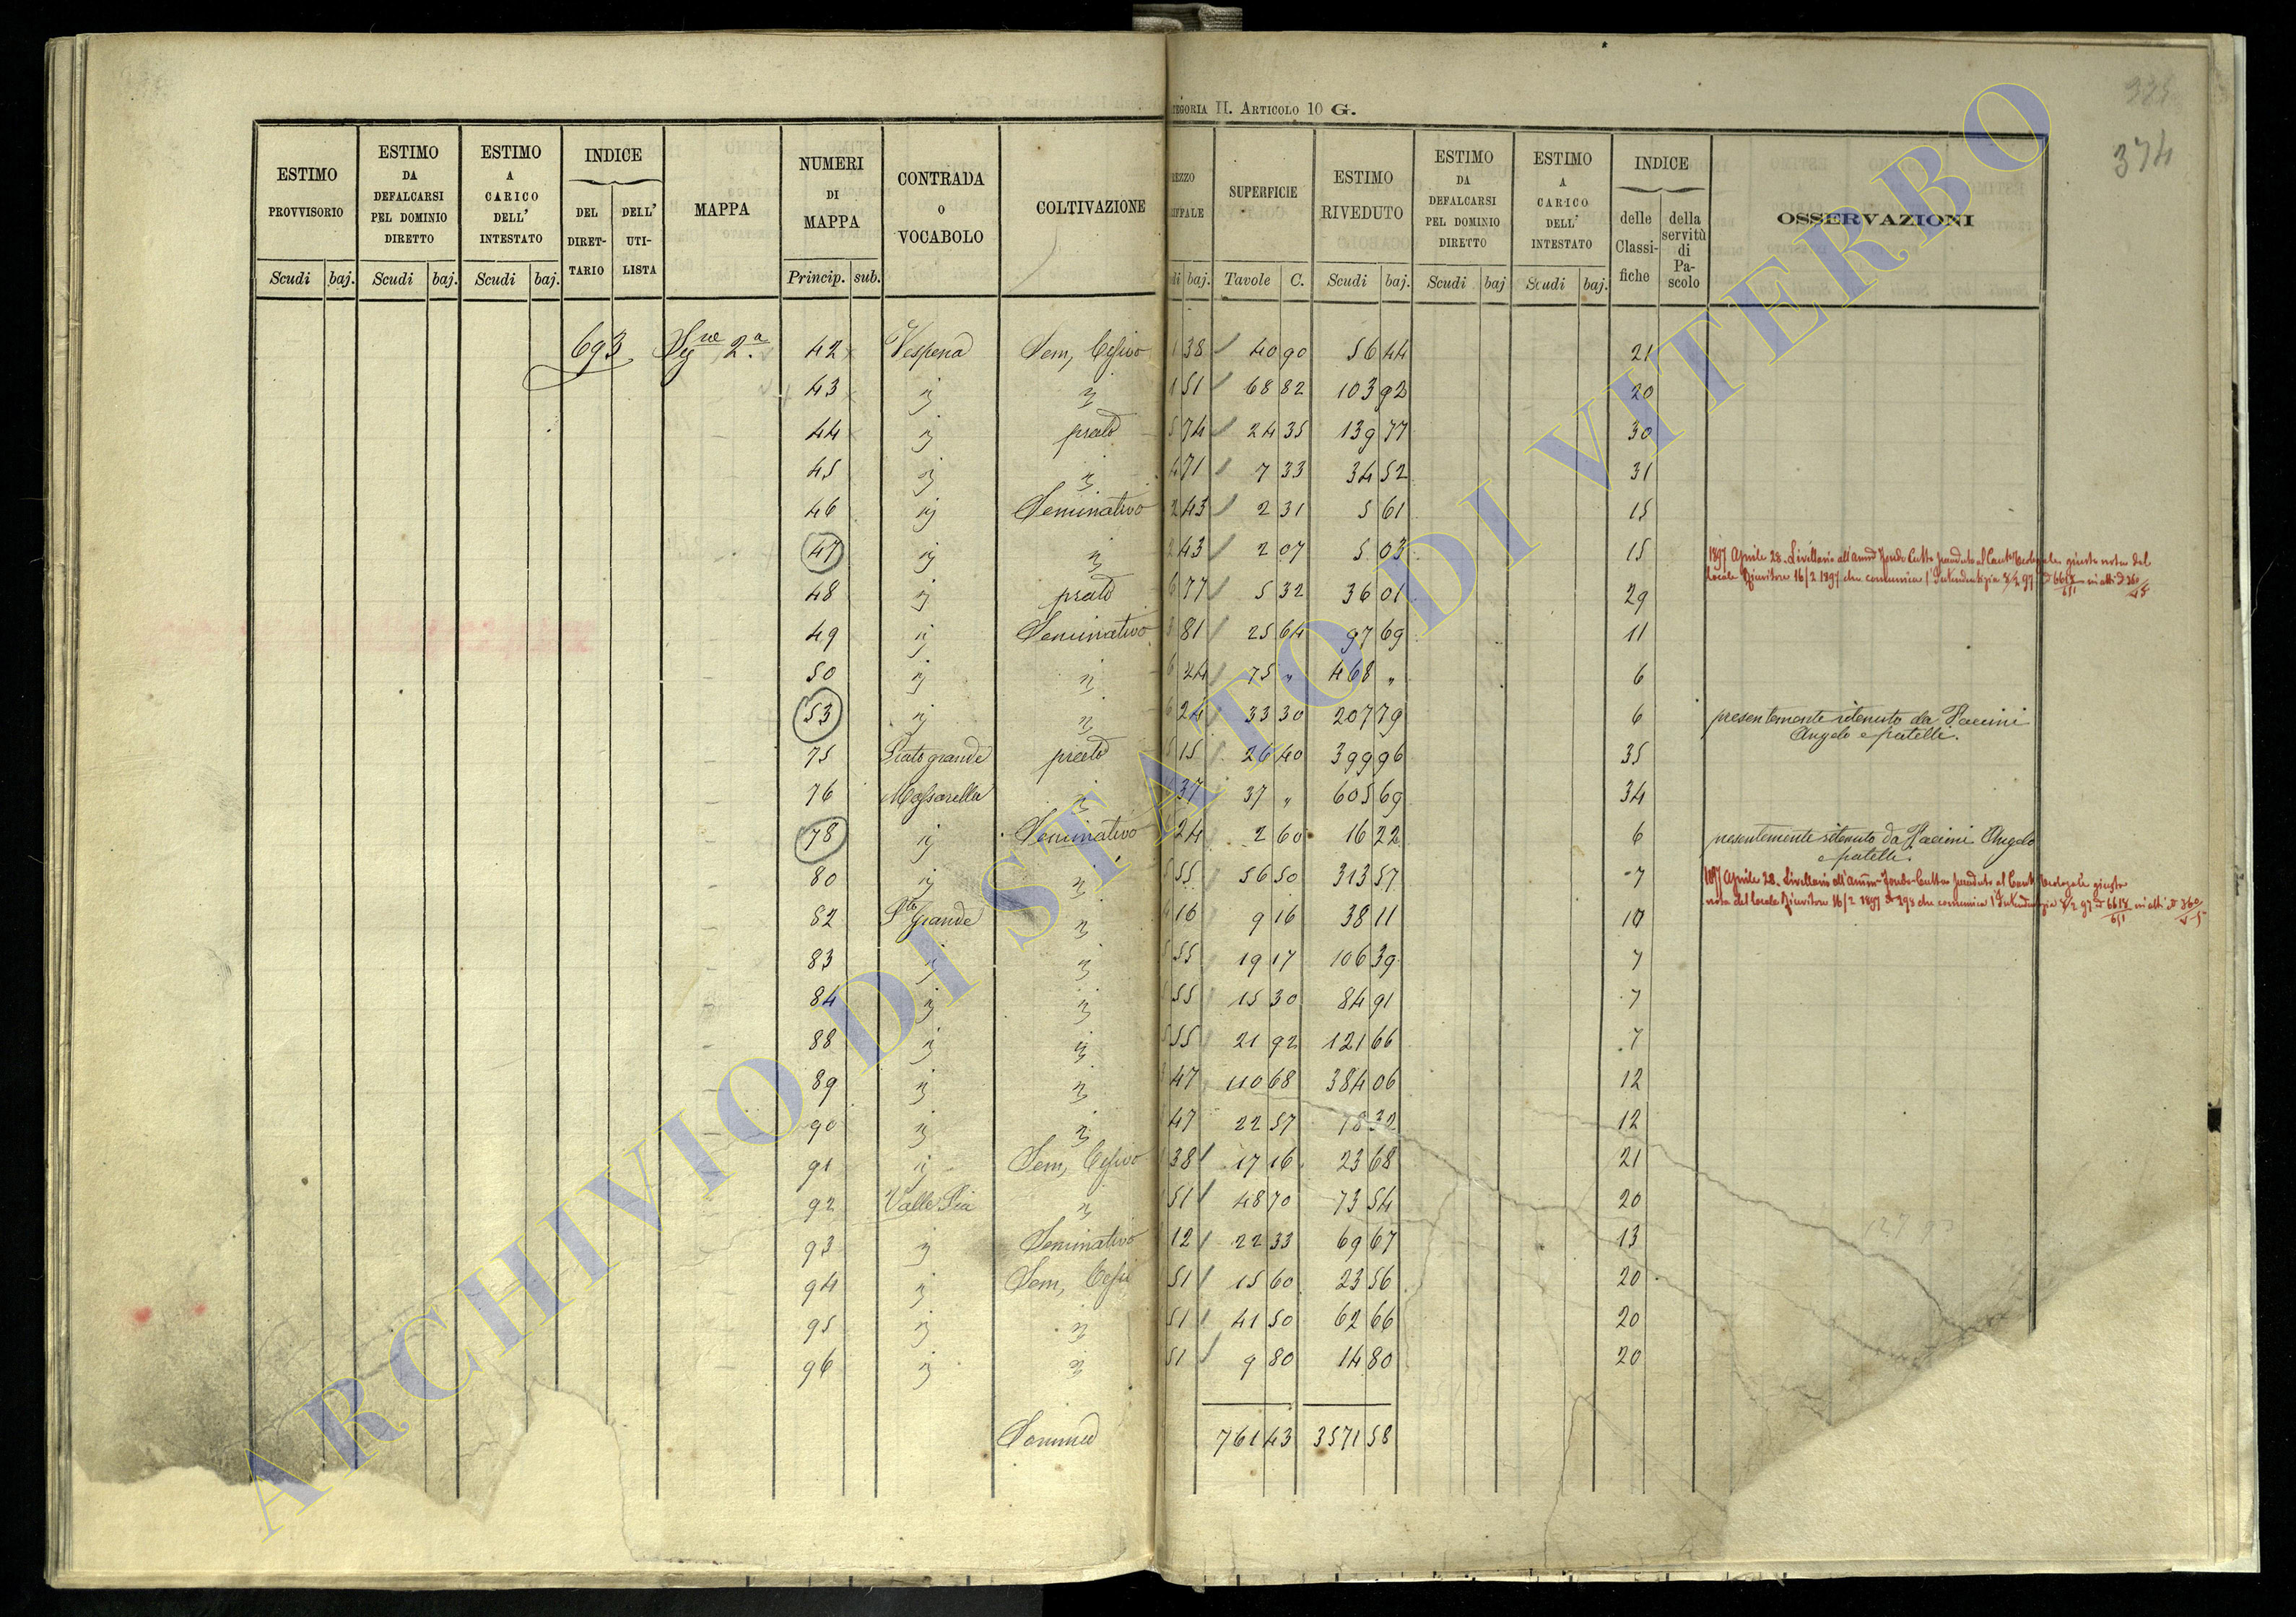 TEGORIA II. ARTICOLO 10 G.
374
ESTIMO PROVVISORIO | ESTIMO DA DEFALCARSI PEL DOMINIO DIRETTO | ESTIMO A CARICO DELL' INTESTATO | INDICE | MAPPA | NUMERI DI MAPPA | CONTRADA O VOCABOLO | COLTIVAZIONE | SUPERFICIE | ESTIMO RIVEDUTO | ESTIMO DA DEFALCARSI PEL DOMINIO DIRETTO | ESTIMO A CARICO DELL' INTESTATO | INDICE | OSSERVAZIONI
DEL DIRET-TARIO | DELL' UTI-LISTA | delle Classi-fiche | della servitù di Pa-scolo
Scudi | baj. | Scudi | baj. | Scudi | baj. | Princip. | sub. | di | baj. | Tavole | C. | Scudi | baj. | Scudi | baj | Scudi | baj.
693 | 2a | 42 | Vespena | Sem, Cesivo | 1 38 | 40 90 | 56 44 | 21
43 | " | " | 1 51 | 68 82 | 103 92 | 20
44 | " | prato | 5 74 | 24 35 | 139 77 | 30
45 | " | " | 4 71 | 7 33 | 34 52 | 31
46 | " | Seminativo | 2 43 | 2 31 | 5 61 | 15
47 | " | " | 2 43 | 2 07 | 5 03 | 15 | 1897 Aprile 28. Livellario all'amm
48 | " | prato | 6 77 | 5 32 | 36 01 | 29 | locale 16/2 1897 che comunica l'Intendenza
49 | " | Seminativo | 3 81 | 25 64 | 97 69 | 11
50 | " | " | 6 24 | 75 " | 468 " | 6
53 | " | " | 6 24 | 33 30 | 207 79 | 6 | presentemente ritenuto da Pacini
Angelo e fratelli.
75 | Prato grande | prato | 15 | 26 40 | 399 96 | 35
76 | Massarella | " | 37 | 37 " | 605 69 | 34
78 | " | Seminativo | 24 | 2 60 | 16 22 | 6 | presentemente ritenuto da Pacini Angelo
e fratelli.
80 | " | " | 5 55 | 56 50 | 313 57 | 7 | 1897 Aprile 28. Livellario all'amm
82 | Pto Grande | " | 4 16 | 9 16 | 38 11 | 10 | nota del locale 16/2 1897 che comunica
83 | " | " | 5 55 | 19 17 | 106 39 | 7
84 | " | " | 55 | 15 30 | 84 91 | 7
88 | " | " | 55 | 21 92 | 121 66 | 7
89 | " | " | 47 | 110 68 | 384 06 | 12
90 | " | " | 47 | 22 57 | 78 32 | 12
91 | " | Sem, Cesivo | 38 | 17 16 | 23 68 | 21
92 | Valle Pia | " | 51 | 48 70 | 73 54 | 20
93 | " | Seminativo | 12 | 22 33 | 69 67 | 13
94 | " | Sem, Cesi | 51 | 15 60 | 23 56 | 20
95 | " | " | 51 | 41 50 | 62 66 | 20
96 | " | " | 51 | 9 80 | 14 80 | 20
Somma | 761 43 | 3571 58
ARCHIVIO DI STATO DI VITERBO